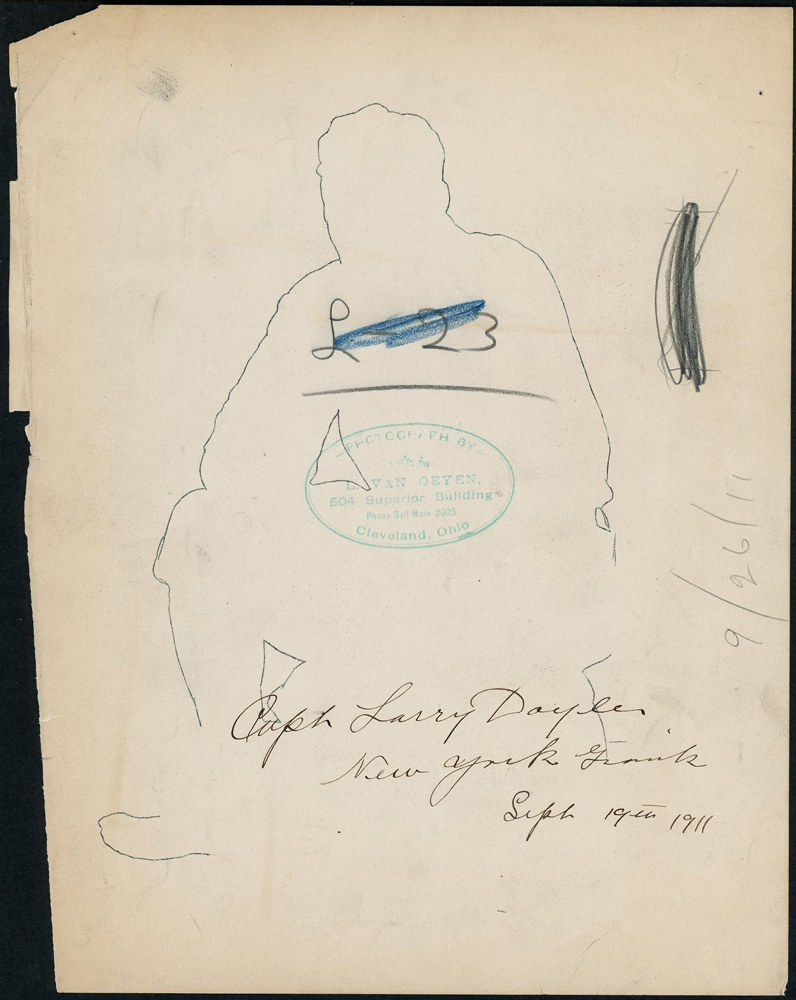 L-23
PHOTOGRAPH BY
L. VAN OEYEN,
504 Superior Building
Phone Bell Main 2025
Cleveland, Ohio
9/26/11
Capt Larry Doyle
New York Giants
Sept 19th 1911